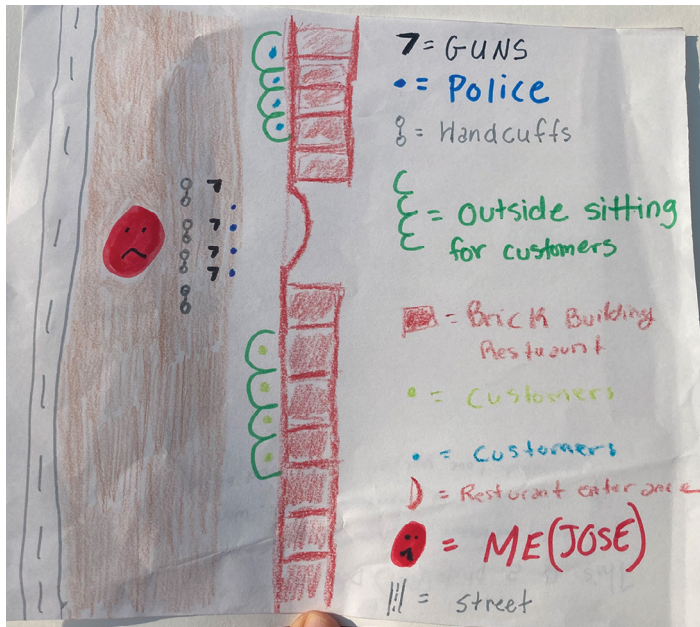 7 = GUNS
• = Police
= Handcuffs
= Outside sitting
for customers
= Brick Building
Restuarnt
• = Customers
• = Customers
= Resturant enterance
= ME(JOSE)
= Street